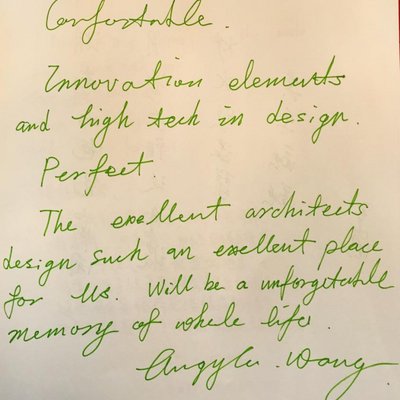 Comfortable.
Innovation elements
and high tech in design.
Perfect.
The excellent architects
design such an excellent place
for us. Will be a unforgetable
memory of whole life.
Wang